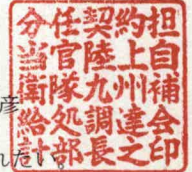 分任契約担
当官陸上自
衛隊九州補
給処調達会
計部長之印
彦
れたい。